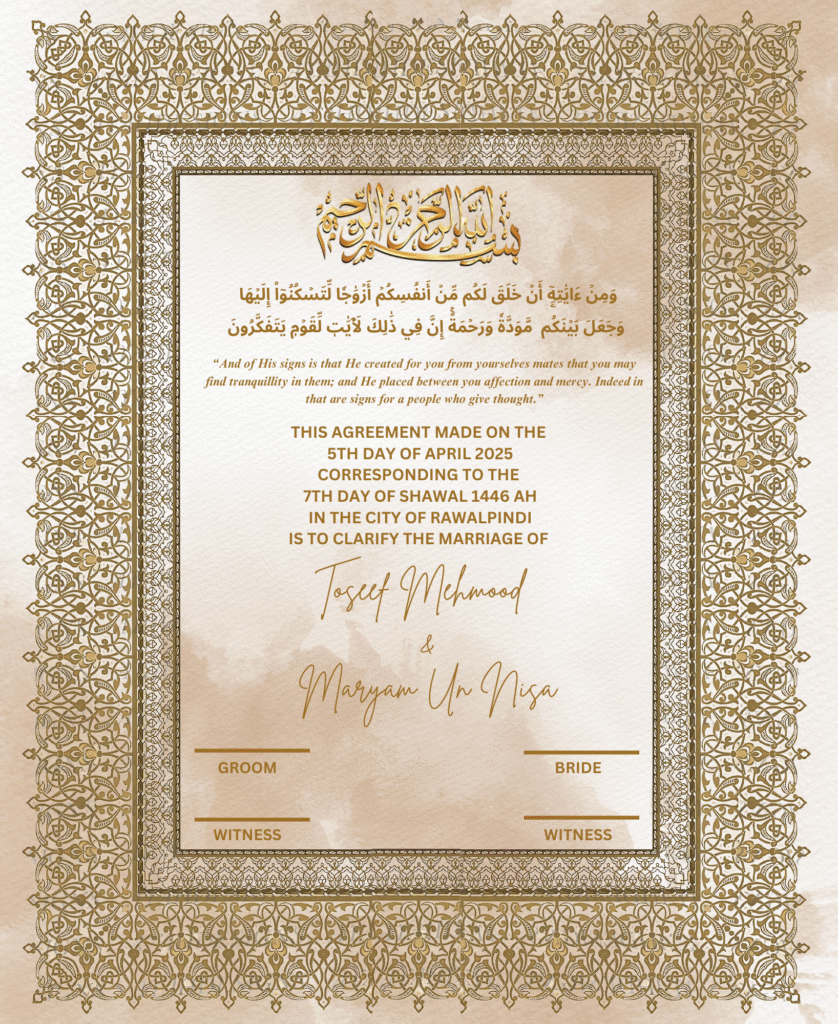 بسم الله الرحمن الرحيم
وَمِنْ ءَايَٰتِهِۦٓ أَنْ خَلَقَ لَكُم مِّنْ أَنفُسِكُمْ أَزْوَٰجًا لِّتَسْكُنُوٓا۟ إِلَيْهَا
وَجَعَلَ بَيْنَكُم مَّوَدَّةً وَرَحْمَةً ۚ إِنَّ فِي ذَٰلِكَ لَءَايَٰتٍ لِّقَوْمٍ يَتَفَكَّرُونَ
“And of His signs is that He created for you from yourselves mates that you may
find tranquillity in them; and He placed between you affection and mercy. Indeed in
that are signs for a people who give thought.”
THIS AGREEMENT MADE ON THE
5TH DAY OF APRIL 2025
CORRESPONDING TO THE
7TH DAY OF SHAWAL 1446 AH
IN THE CITY OF RAWALPINDI
IS TO CLARIFY THE MARRIAGE OF
Toseef Mehmood
&
Maryam Un Nisa
GROOM
BRIDE
WITNESS
WITNESS